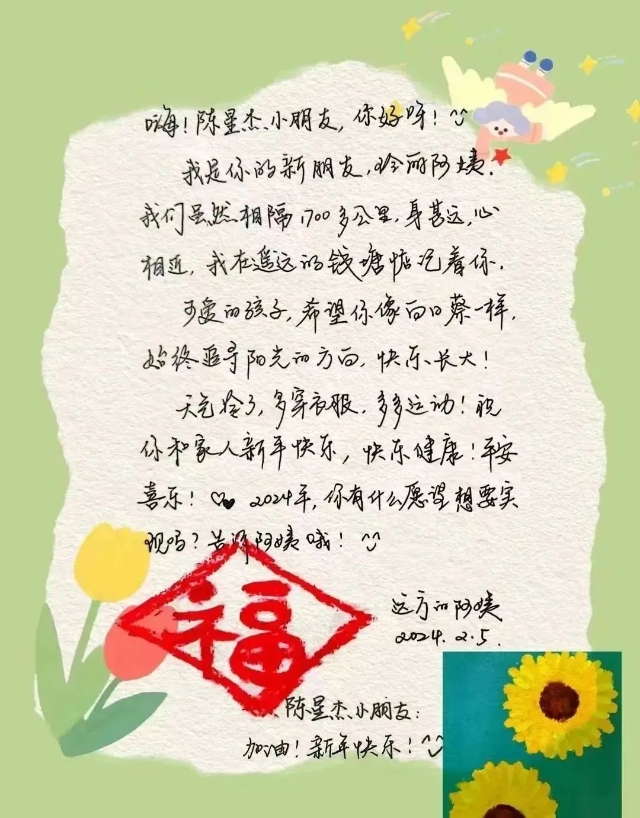 嗨！陈星杰小朋友，你好呀！
我是你的新朋友，玲丽阿姨.
我们虽然相隔1700多公里，身甚远，心
相近，我在遥远的钱塘惦记着你.
可爱的孩子，希望你像向日葵一样，
始终追寻阳光的方向，快乐长大！
天气冷了，多穿衣服，多多运动！祝
你和家人新年快乐，快乐健康！平安
喜乐！♡♥ 2024年，你有什么愿望想要实
现吗？告诉阿姨哦！
远方的阿姨
2024.2.5.
福
陈星杰小朋友：
加油！新年快乐！